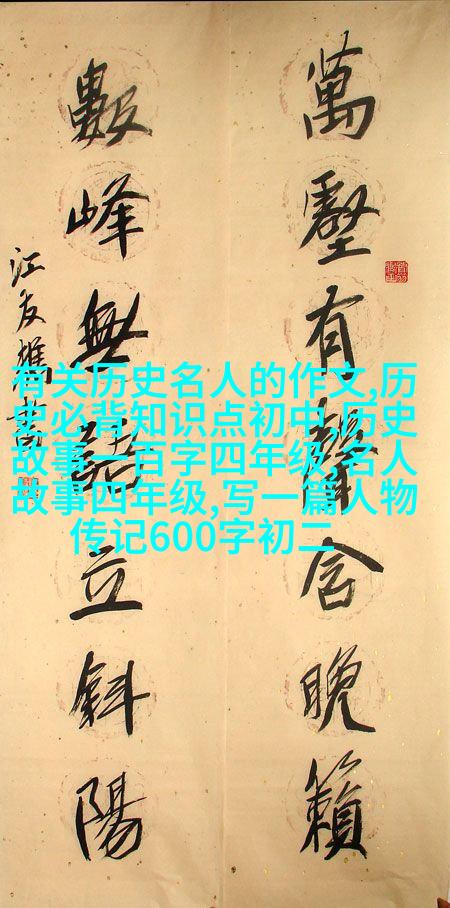 萬壑有聲含晚籟
數峰無語立斜陽
江友樵書
有关历史名人的作文,历
史必背知识点初中,历史
故事一百字四年级,名人
故事四年级,写一篇人物
传记600字初二